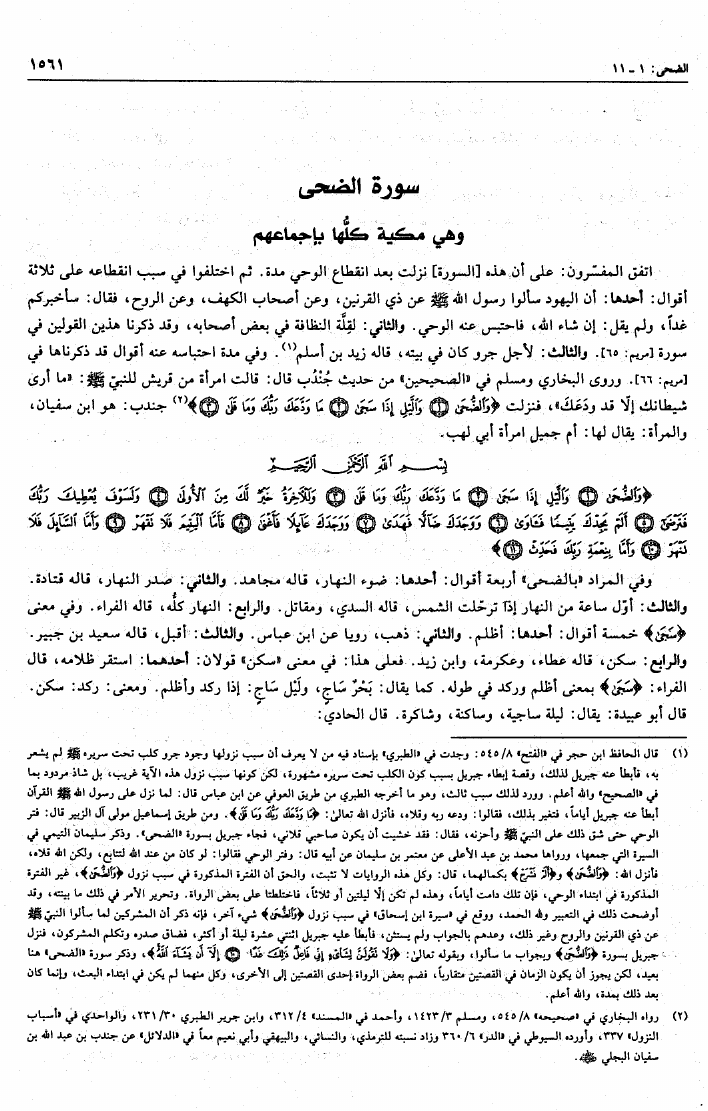 الضحى: ١ - ١١
١٥٦١
سورة الضحى
وهي مكية كلُّها بإجماعهم
اتفق المفسّرون: على أن هذه [السورة] نزلت بعد انقطاع الوحي مدة. ثم اختلفوا في سبب انقطاعه على ثلاثة
أقوال: أحدها: أن اليهود سألوا رسول الله ﷺ عن ذي القرنين، وعن أصحاب الكهف، وعن الروح، فقال: سأخبركم
غداً، ولم يقل: إن شاء الله، فاحتبس عنه الوحي. والثاني: لقِلَّة النظافة في بعض أصحابه، وقد ذكرنا هذين القولين في
سورة [مريم: ٦٥]. والثالث: لأجل جرو كان في بيته، قاله زيد بن أسلم(١). وفي مدة احتباسه عنه أقوال قد ذكرناها في
[مريم: ٦٦]. وروى البخاري ومسلم في «الصحيحين» من حديث جُنْدُب قال: قالت امرأة من قريش للنبيّ ﷺ: «ما أرى
شيطانك إلّا قد ودّعَكَ»، فنزلت ﴿وَٱلضُّحَىٰ ١ وَٱلَّيْلِ إِذَا سَجَىٰ ٢ مَا وَدَّعَكَ رَبُّكَ وَمَا قَلَىٰ ٣﴾(٢) جندب: هو ابن سفيان،
والمرأة: يقال لها: أم جميل امرأة أبي لهب.
بِسْمِ ٱللَّهِ ٱلرَّحْمَٰنِ ٱلرَّحِيمِ
﴿وَٱلضُّحَىٰ ١ وَٱلَّيْلِ إِذَا سَجَىٰ ٢ مَا وَدَّعَكَ رَبُّكَ وَمَا قَلَىٰ ٣ وَلَلْآخِرَةُ خَيْرٌ لَّكَ مِنَ ٱلْأُولَىٰ ٤ وَلَسَوْفَ يُعْطِيكَ رَبُّكَ
فَتَرْضَىٰ ٥ أَلَمْ يَجِدْكَ يَتِيمًا فَـَٔاوَىٰ ٦ وَوَجَدَكَ ضَآلًّا فَهَدَىٰ ٧ وَوَجَدَكَ عَآئِلًا فَأَغْنَىٰ ٨ فَأَمَّا ٱلْيَتِيمَ فَلَا تَقْهَرْ ٩ وَأَمَّا ٱلسَّآئِلَ فَلَا
تَنْهَرْ ١٠ وَأَمَّا بِنِعْمَةِ رَبِّكَ فَحَدِّثْ ١١﴾
وفي المراد «بالضحى» أربعة أقوال: أحدها: ضوء النهار، قاله مجاهد. والثاني: صدر النهار، قاله قتادة.
والثالث: أوّل ساعة من النهار إذا ترحّلت الشمس، قاله السدي، ومقاتل. والرابع: النهار كلُّه، قاله الفراء. وفي معنى
﴿سَجَىٰ﴾ خمسة أقوال: أحدها: أظلم. والثاني: ذهب، رويا عن ابن عباس. والثالث: أقبل، قاله سعيد بن جبير.
والرابع: سكن، قاله عطاء، وعكرمة، وابن زيد. فعلى هذا: في معنى «سكن» قولان: أحدهما: استقر ظلامه، قال
الفراء: ﴿سَجَىٰ﴾ بمعنى أظلم وركد في طوله. كما يقال: بَحْرٌ سَاجٍ، ولَيْل سَاجٍ: إذا ركد وأظلم. ومعنى: ركد: سكن.
قال أبو عبيدة: يقال: ليلة ساجية، وساكنة، وشاكرة. قال الحادي:
(١) قال الحافظ ابن حجر في «الفتح» ٥٤٥/٨: وجدت في «الطبري» بإسناد فيه من لا يعرف أن سبب نزولها وجود جرو كلب تحت سريره ﷺ لم يشعر
به، فأبطأ عنه جبريل لذلك، وقصة إبطاء جبريل بسبب كون الكلب تحت سريره مشهورة، لكن كونها سبب نزول هذه الآية غريب، بل شاذ مردود بما
في «الصحيح» والله أعلم. وورد لذلك سبب ثالث، وهو ما أخرجه الطبري من طريق العوفي عن ابن عباس قال: لما نزل على رسول الله ﷺ القرآن
أبطأ عنه جبريل أياماً، فتغير بذلك، فقالوا: ودعه ربه وقلاه، فأنزل الله تعالى: ﴿مَا وَدَّعَكَ رَبُّكَ وَمَا قَلَىٰ﴾. ومن طريق إسماعيل مولى آل الزبير قال: فتر
الوحي حتى شق ذلك على النبيّ ﷺ وأحزنه، فقال: فقد خشيت أن يكون صاحبي قلاني، فجاء جبريل بسورة «الضحى». وذكر سليمان التيمي في
السيرة التي جمعها، ورواها محمد بن عبد الأعلى عن معتمر بن سليمان عن أبيه قال: وفتر الوحي فقالوا: لو كان من عند الله لتتابع، ولكن الله قلاه،
فأنزل الله: ﴿وَٱلضُّحَىٰ﴾ و﴿أَلَمْ نَشْرَحْ﴾ بكمالهما، قال: وكل هذه الروايات لا تثبت، والحق أن الفترة المذكورة في سبب نزول ﴿وَٱلضُّحَىٰ﴾، غير الفترة
المذكورة في ابتداء الوحي، فإن تلك دامت أياماً، وهذه لم تكن إلّا ليلتين أو ثلاثاً، فاختلطتا على بعض الرواة. وتحرير الأمر في ذلك ما بينته، وقد
أوضحت ذلك في التعبير ولله الحمد، ووقع في «سيرة ابن إسحاق» في سبب نزول ﴿وَٱلضُّحَىٰ﴾ شيء آخر، فإنه ذكر أن المشركين لما سألوا النبيّ ﷺ
عن ذي القرنين والروح وغير ذلك، وعدهم بالجواب ولم يستثن، فأبطأ عليه جبريل اثنتي عشرة ليلة أو أكثر، فضاق صدره وتكلم المشركون، فنزل
جبريل بسورة ﴿وَٱلضُّحَىٰ﴾ وبجواب ما سألوا، وبقوله تعالى: ﴿وَلَا تَقُولَنَّ لِشَا۟ىْءٍ إِنِّي فَاعِلٌ ذَٰلِكَ غَدًا ٢٣ إِلَّآ أَن يَشَآءَ ٱللَّهُ﴾، وذكر سورة «الضحى» هنا
بعيد، لكن يجوز أن يكون الزمان في القصتين متقارباً، فضم بعض الرواة إحدى القصتين إلى الأخرى، وكل منهما لم يكن في ابتداء البعث، وإنما كان
بعد ذلك بمدة، والله أعلم.
(٢) رواه البخاري في «صحيحه» ٥٤٥/٨، ومسلم ١٤٢٣/٣، وأحمد في «المسند» ٣١٢/٤، وابن جرير الطبري ٢٣١/٣٠، والواحدي في «أسباب
النزول» ٣٣٧، وأورده السيوطي في «الدر» ٣٦٠/٦ وزاد نسبته للترمذي، والنسائي، والبيهقي وأبي نعيم معاً في «الدلائل» عن جندب بن عبد الله بن
سفيان البجلي ﵁.